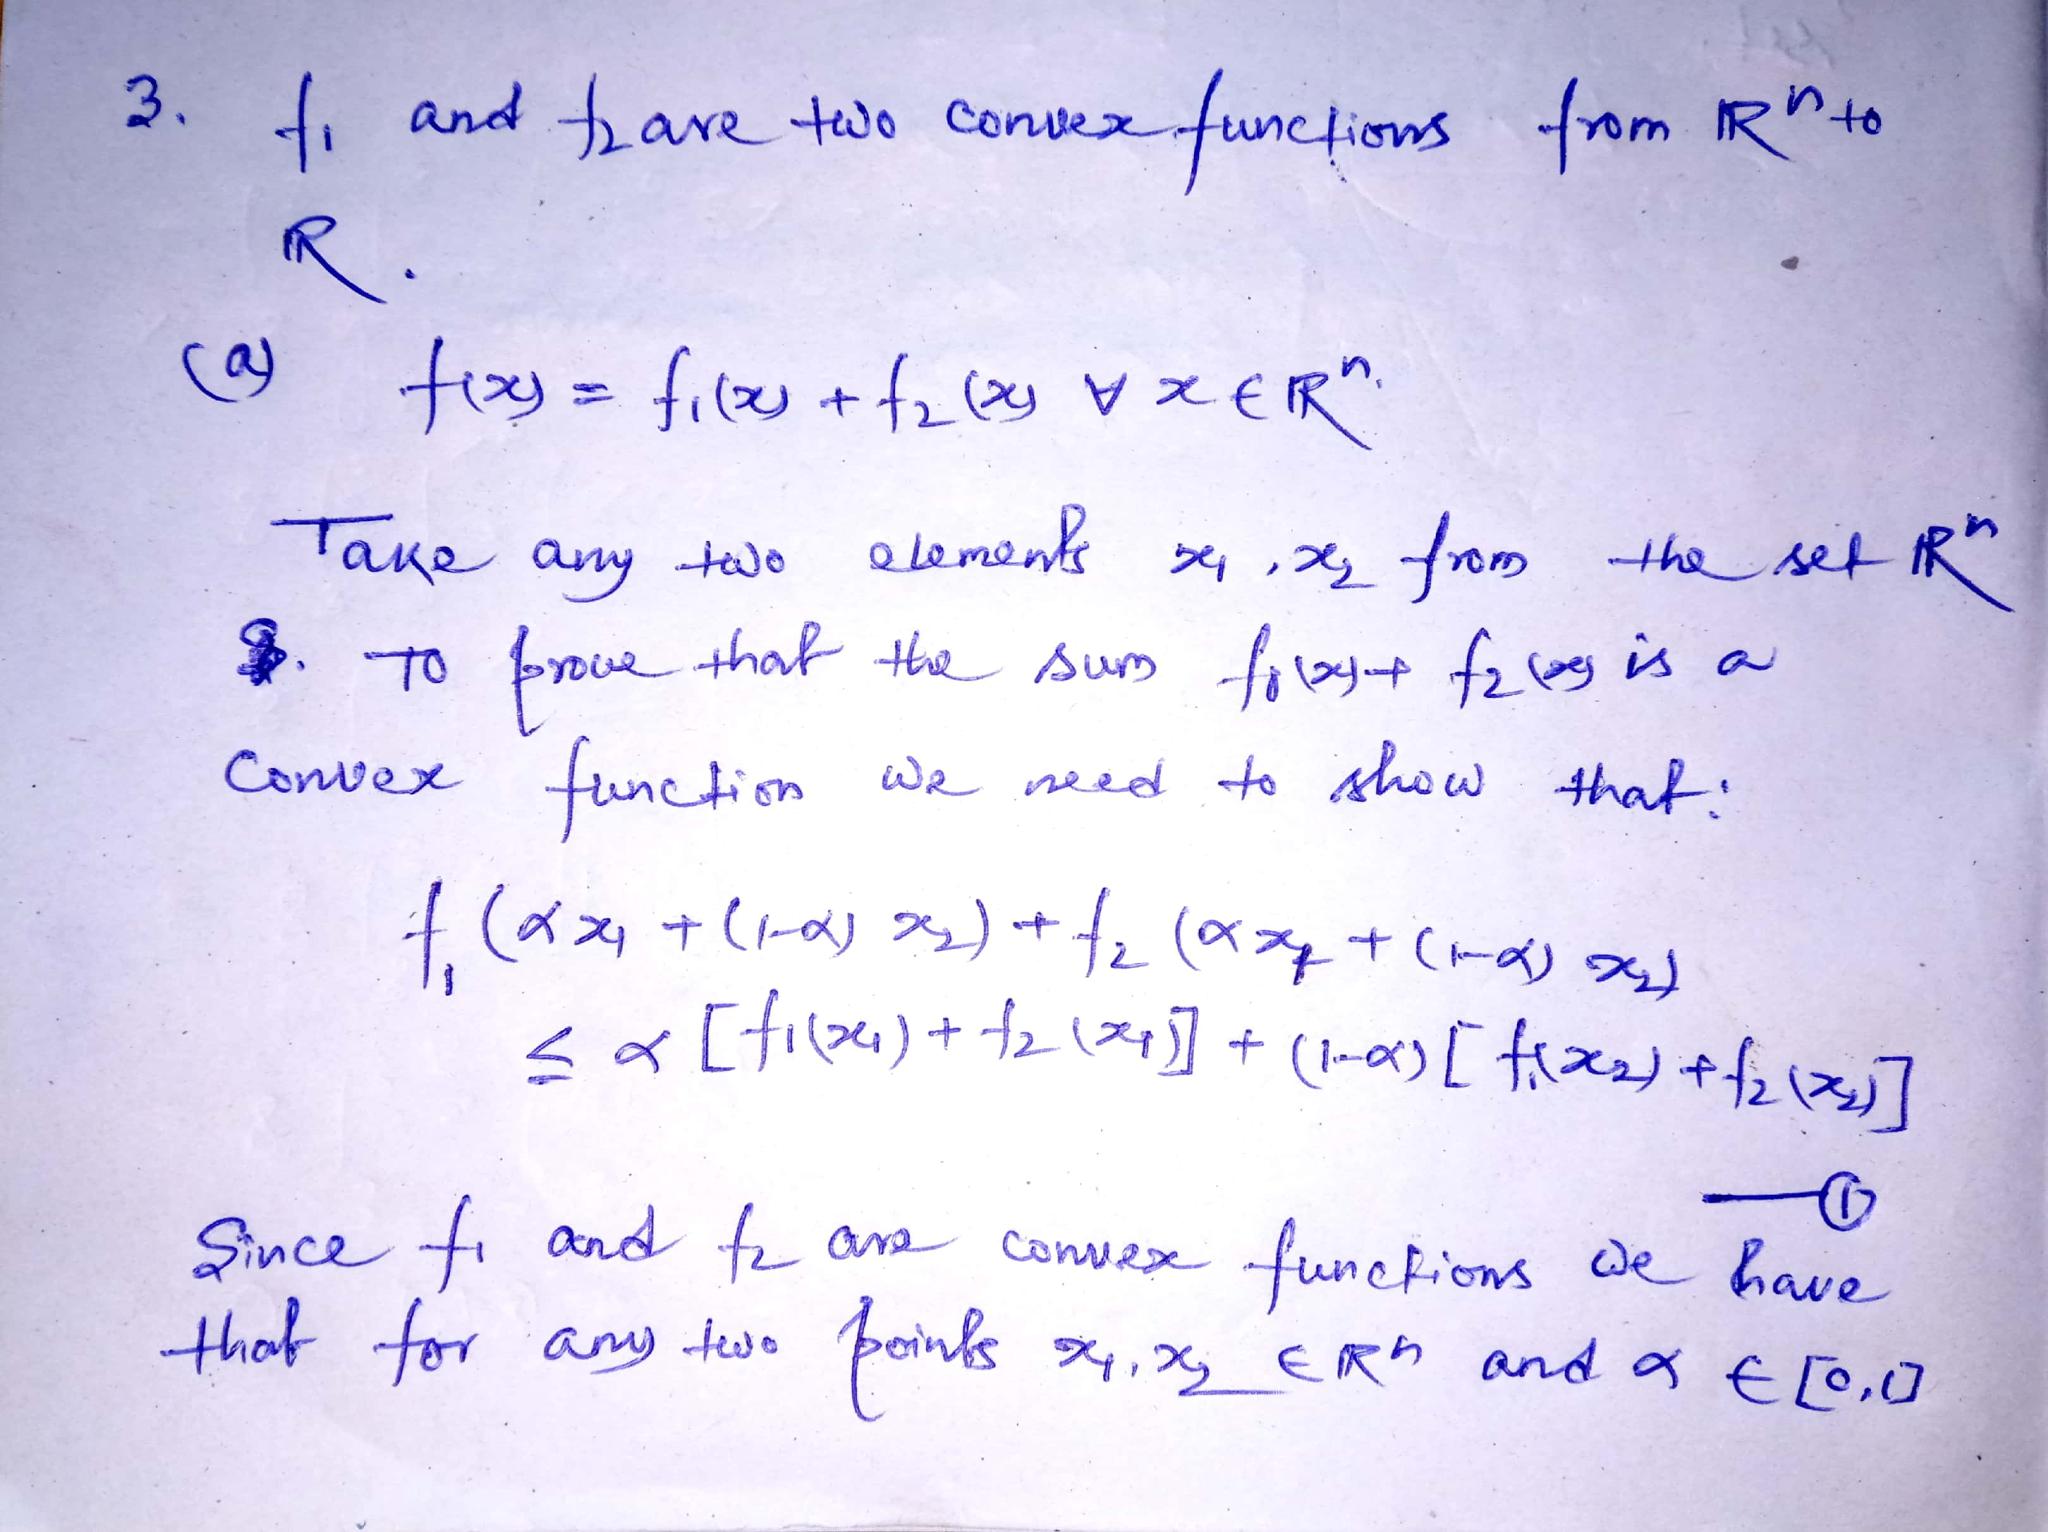 3. f₁ and f₂ are two convex functions from ℝⁿ to
ℝ.
(a) f(x) = f₁(x) + f₂(x) ∀ x ∈ ℝⁿ.
Take any two elements x₁, x₂ from the set ℝⁿ
. To prove that the sum f₁(x) + f₂(x) is a
convex function we need to show that:
f₁(αx₁ + (1-α) x₂) + f₂(αx₁ + (1-α) x₂)
≤ α [f₁(x₁) + f₂(x₁)] + (1-α) [f₁(x₂) + f₂(x₂)]
—①
Since f₁ and f₂ are convex functions we have
that for any two points x₁, x₂ ∈ ℝⁿ and α ∈ [0,1]